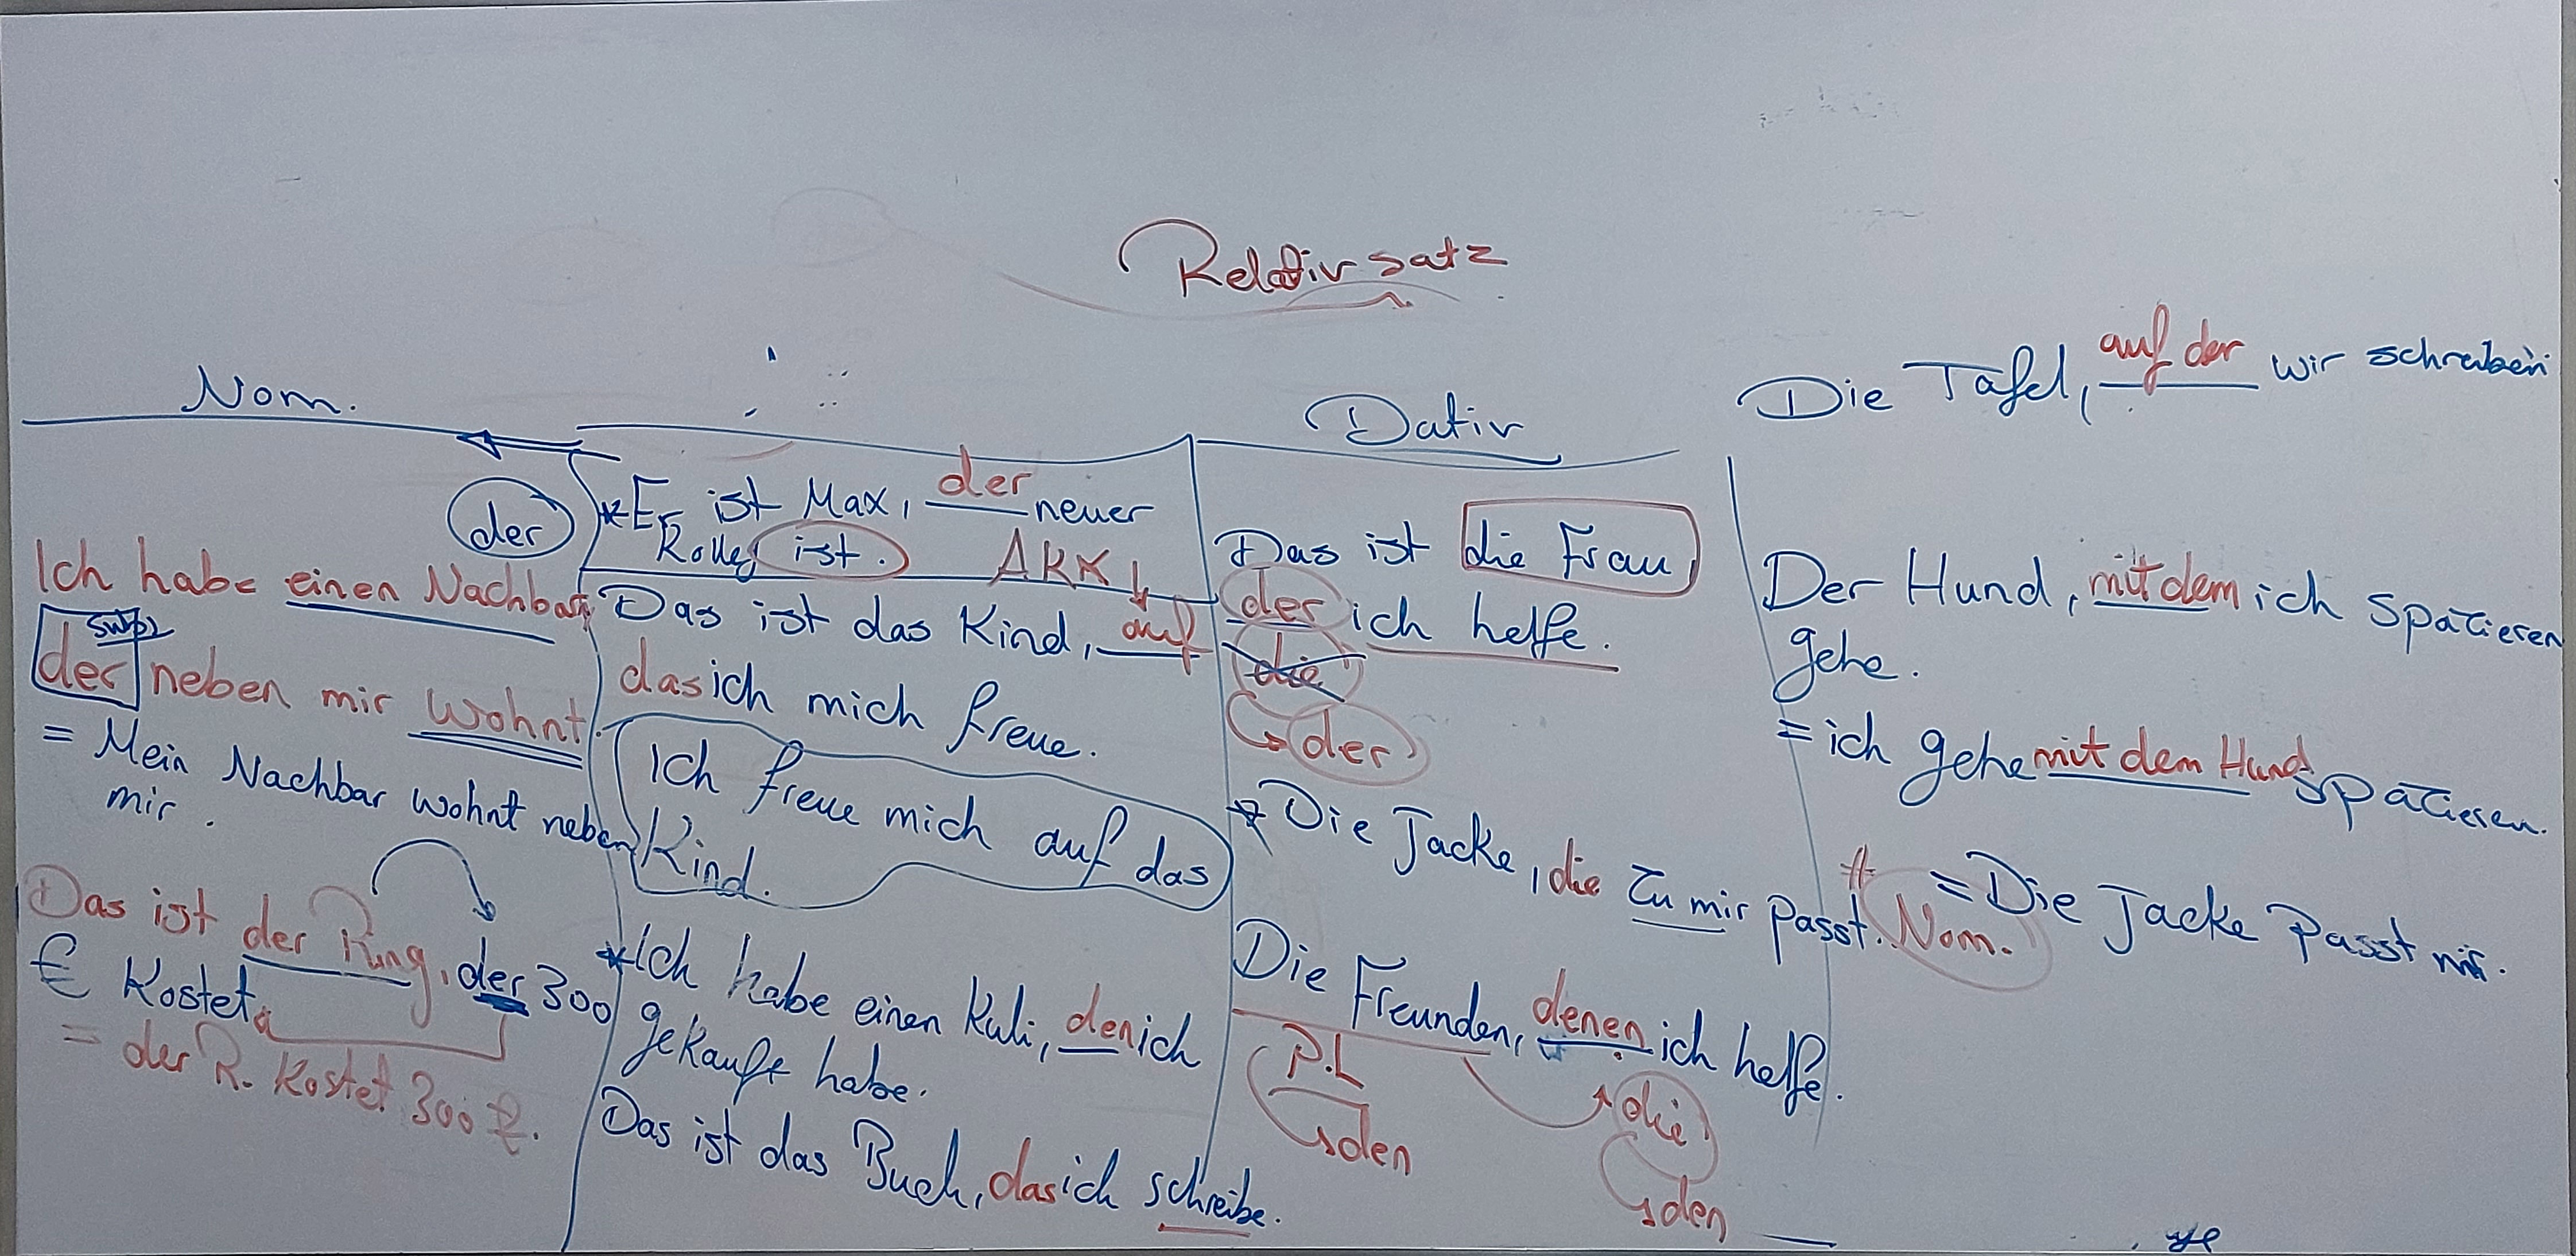 Relativsatz
Nom.
der
Ich habe einen Nachbar,
der neben mir wohnt.
= Mein Nachbar wohnt neben
mir.
Das ist der Ring, der 300
€ kostet.
= der R. kostet 300 €.
*Er ist Max, der neuer
ist.
AKK
Das ist das Kind, auf
das ich mich freue.
Ich freue mich auf das
Kind.
*Ich habe einen Kuli, den ich
gekauft habe.
Das ist das Buch, das ich schreibe.
Dativ
Das ist die Frau,
der ich helfe.
die
der
*Die Jacke, die zu mir passt. Nom.
Die Freunden, denen ich helfe.
P.L
den
die
den
Die Tafel, auf der wir schreiben
Der Hund, mit dem ich spazieren
gehe.
= ich gehe mit dem Hund spazieren.
= Die Jacke Passt mir.